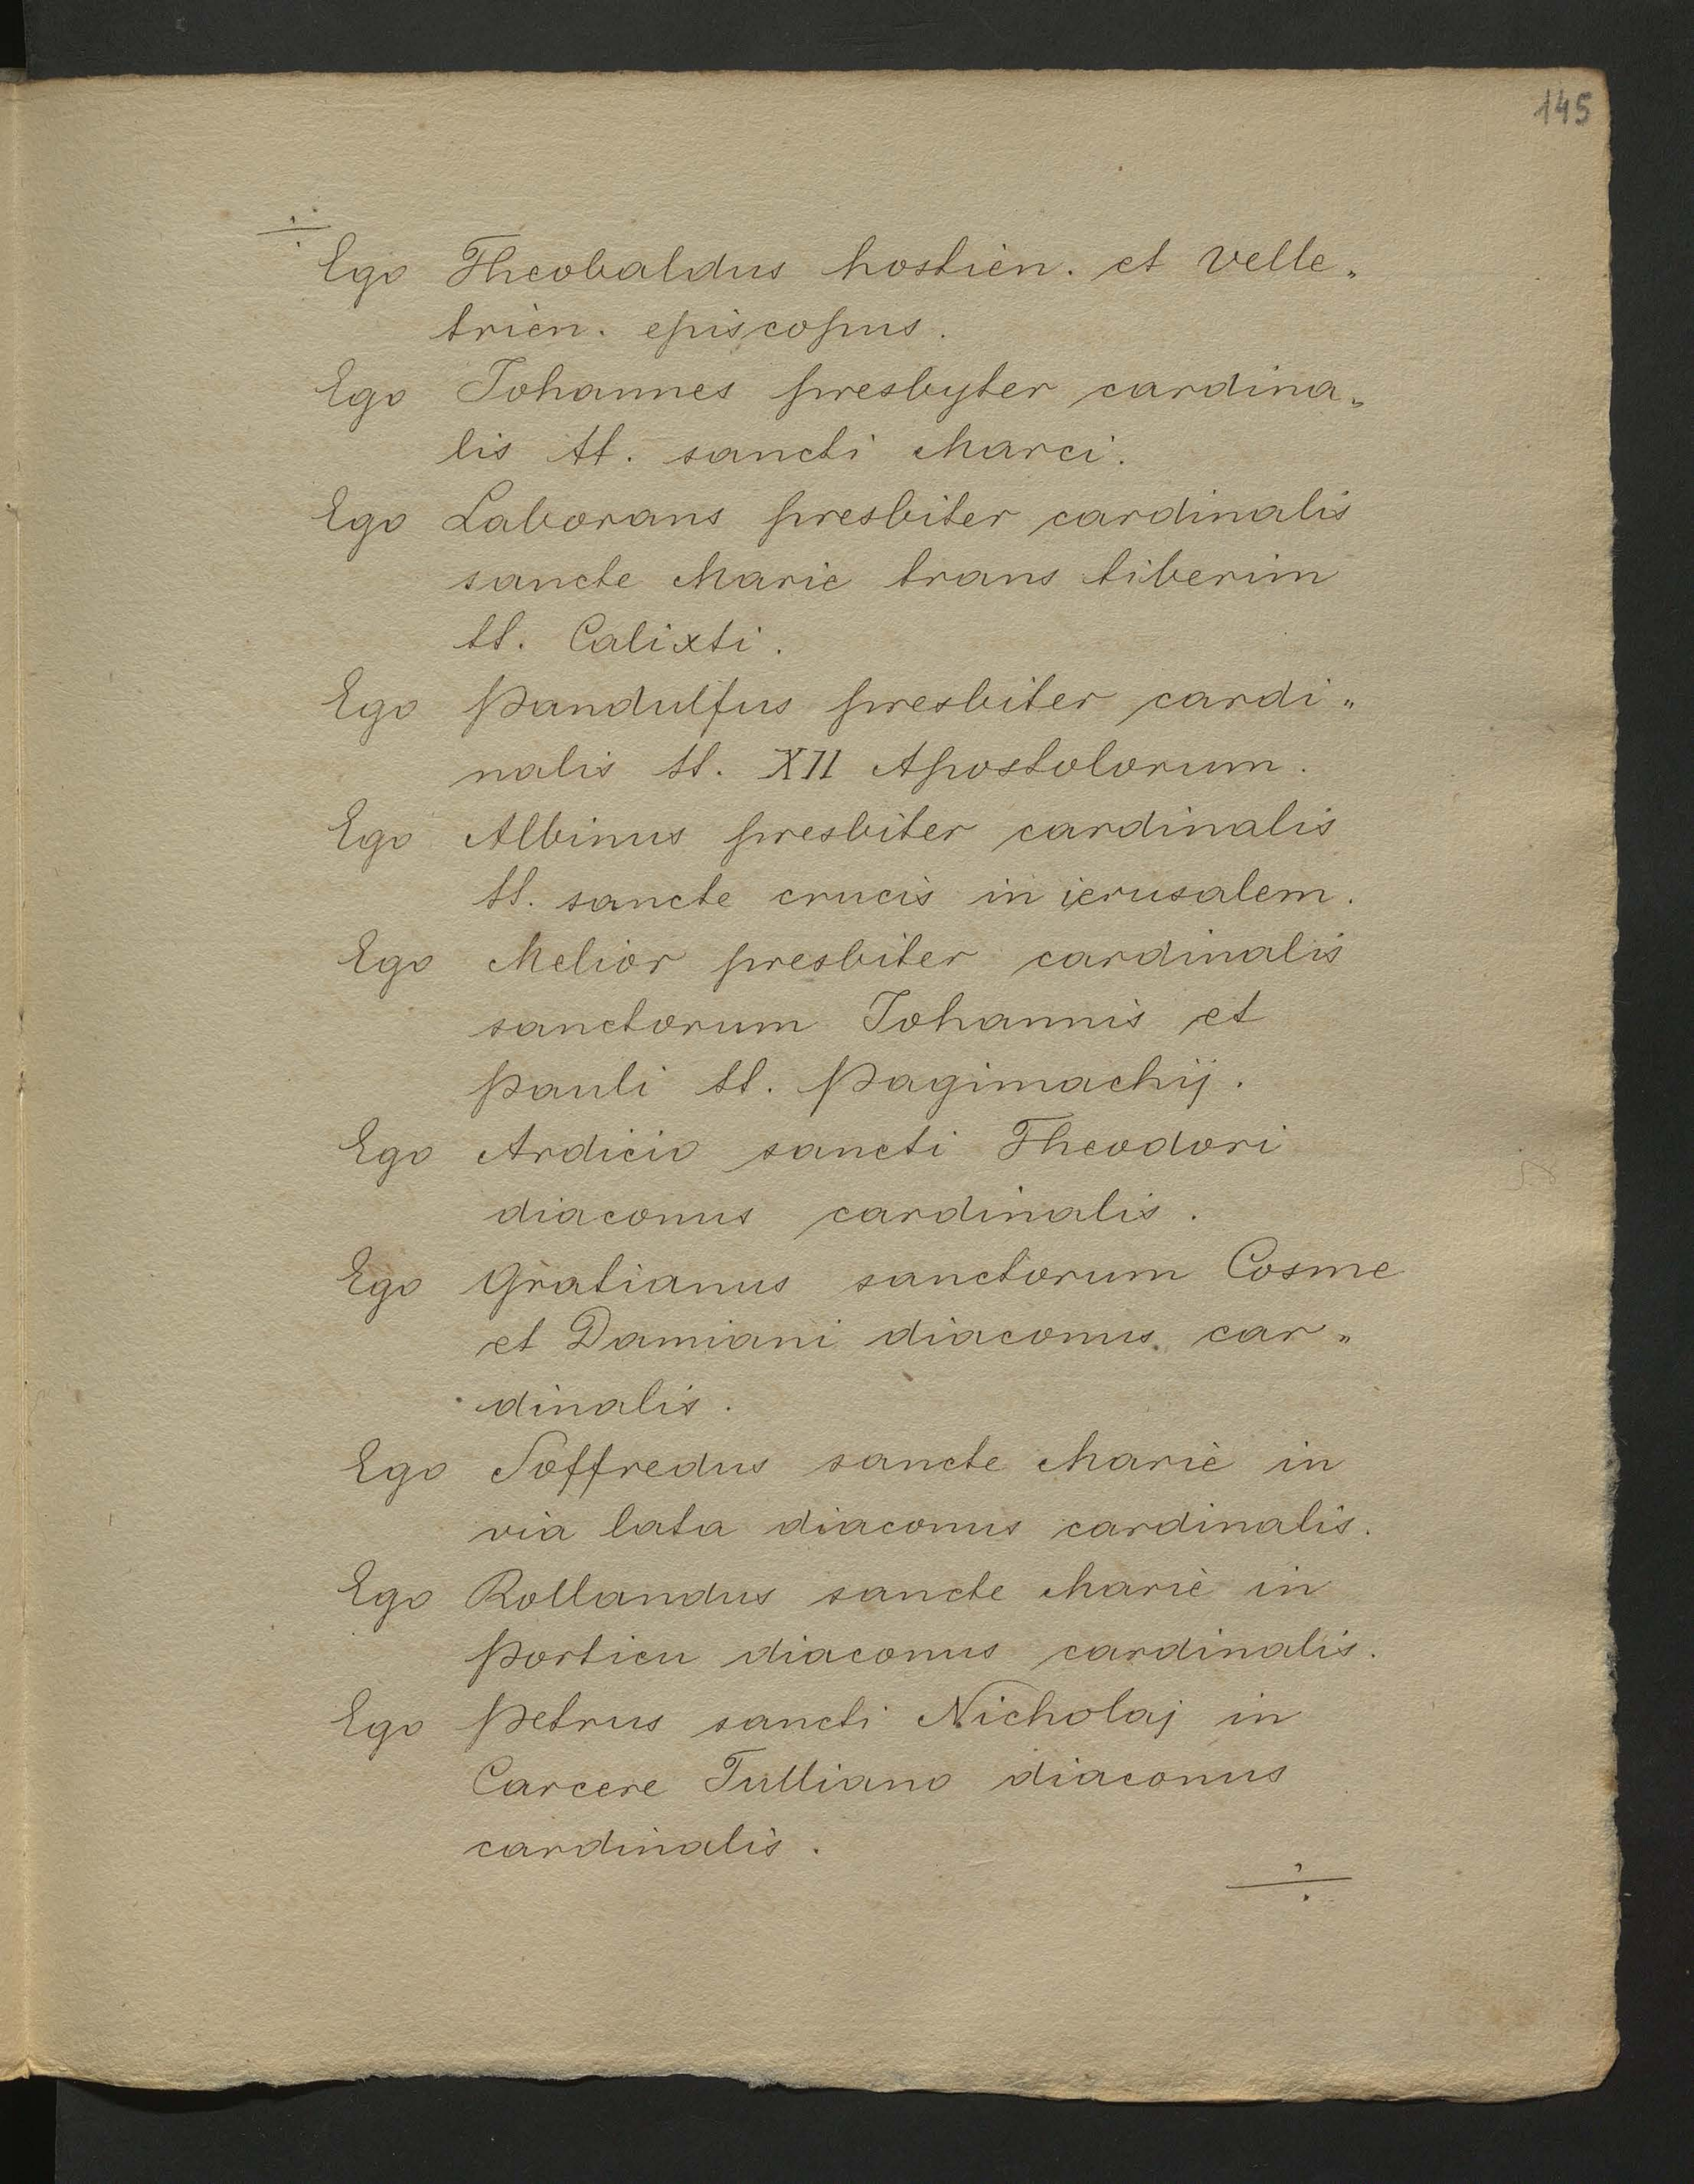 145
Ego Theobaldus hostien. et velle„
trien. episcopus.
Ego Johannes presbyter cardina„
lis tt. sancti Marci.
Ego Laborans presbiter cardinalis
sancte Marie trans tiberim
tt. Calixti.
Ego Pandulfus presbiter cardi„
nalis tt. XII Apostolorum.
Ego Albinus presbiter cardinalis
tt. sancte crucis in ierusalem.
Ego Melior presbiter cardinalis
sanctorum Johannis et
Pauli tt. Pagimachij.
Ego Ardicio sancti Theodori
diaconus cardinalis.
Ego Gratianus sanctorum Cosme
et Damiani diaconus car„
dinalis.
Ego Soffredus sancte Marie in
via lata diaconus cardinalis.
Ego Rollandus sancte Marie in
Porticu diaconus cardinalis.
Ego Petrus sancti Nicholaj in
Carcere Tulliano diaconus
cardinalis.